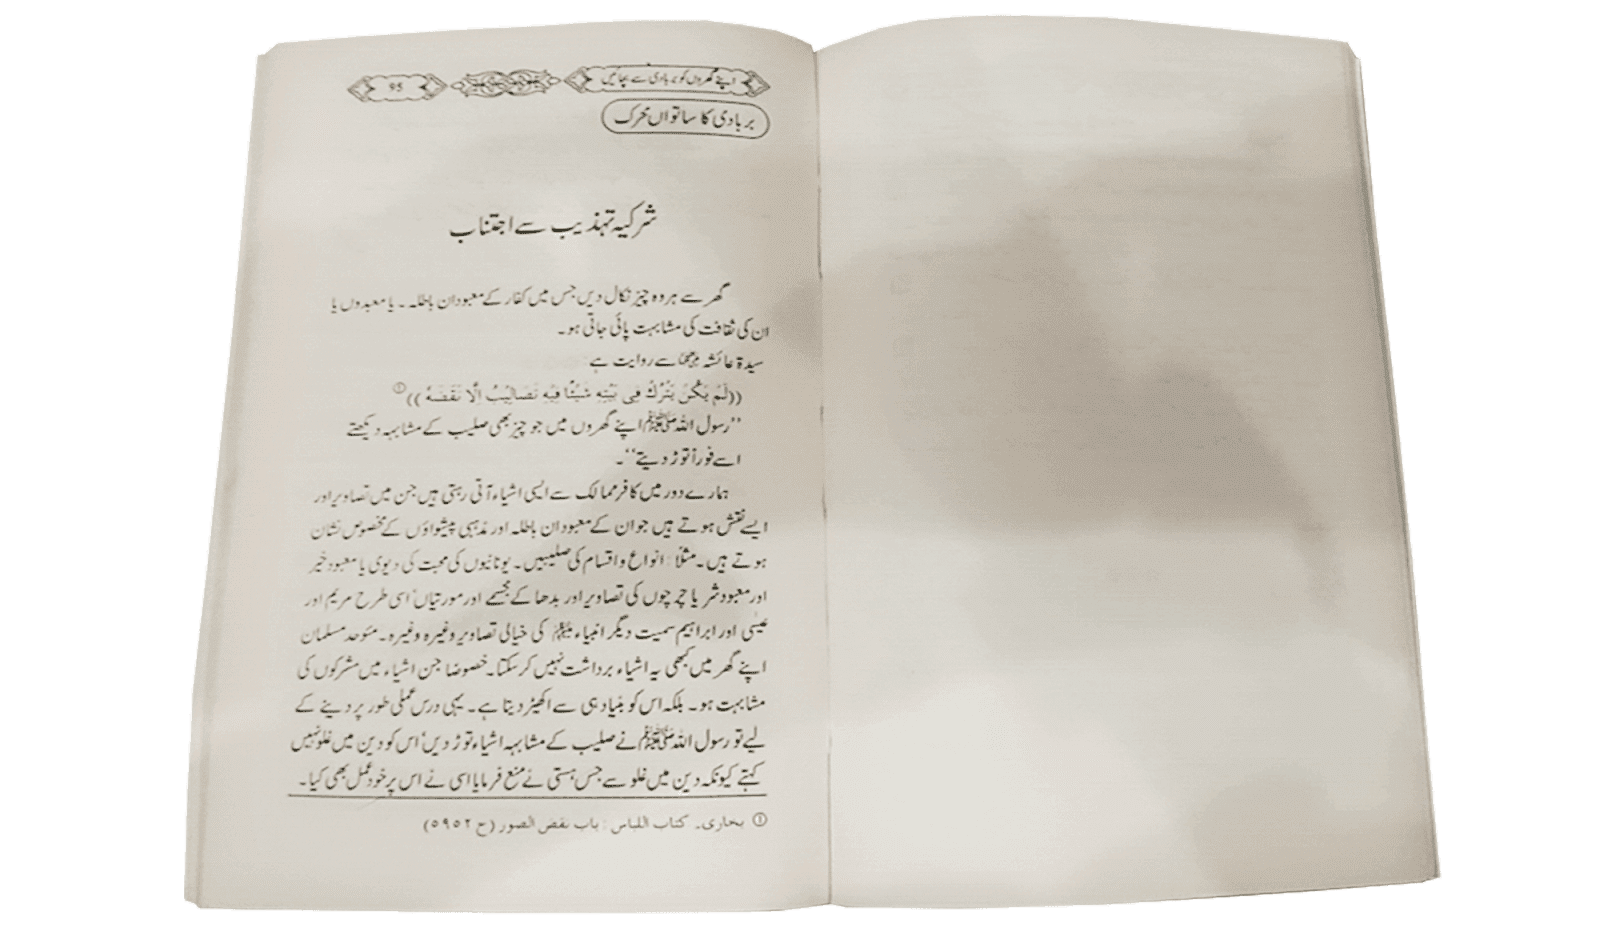 اپنے گھروں کو بربادی سے بچائیں
95
بربادی کا ساتواں محرک
شرکیہ تہذیب سے اجتناب
گھر سے ہر وہ چیز نکال دیں جس میں کفار کے معبودان باطلہ ۔ یا معبدوں یا
ان کی ثقافت کی مشابہت پائی جاتی ہو۔
سیدۃ عائشہ رضی اللہ عنہا سے روایت ہے:
((لَمْ يَكُنْ يَتْرُكُ فِى بَيْتِهِ شَيْئًا فِيهِ تَصَالِيْبُ اِلَّا نَقَضَهُ)) ①
’’رسول اللہ ﷺ اپنے گھروں میں جو چیز بھی صلیب کے مشابہہ دیکھتے
اسے فوراً توڑ دیتے‘‘۔
ہمارے دور میں کافر ممالک سے ایسی اشیاء آتی رہتی ہیں جن میں تصاویر اور
ایسے نقش ہوتے ہیں جو ان کے معبودان باطلہ اور مذہبی پیشواؤں کے مخصوص نشان
ہوتے ہیں۔ مثلاً: انواع و اقسام کی صلیبیں۔ یونانیوں کی محبت کی دیوی یا معبود خیر
اور معبود شر یا چرچوں کی تصاویر اور بدھا کے مجسمے اور مورتیاں‘ اسی طرح مریم اور
عیسیٰ اور ابراہیم سمیت دیگر انبیاء علیہم السلام کی خیالی تصاویر وغیرہ وغیرہ۔ مئوحد مسلمان
اپنے گھر میں کبھی یہ اشیاء برداشت نہیں کر سکتا۔ خصوصاً جن اشیاء میں مشرکوں کی
مشابہت ہو۔ بلکہ اس کو بنیاد ہی سے اکھیڑ دیتا ہے۔ یہی درس عملی طور پر دینے کے
لیے تو رسول اللہ ﷺ نے صلیب کے مشابہہ اشیاء توڑ دیں‘ اس کو دین میں غلو نہیں
کہتے کیونکہ دین میں غلو سے جس ہستی نے منع فرمایا اسی نے اس پر خود عمل بھی کیا۔
① بخاری۔ کتاب اللباس : باب نقض الصور (ح ۵۹۵۲)